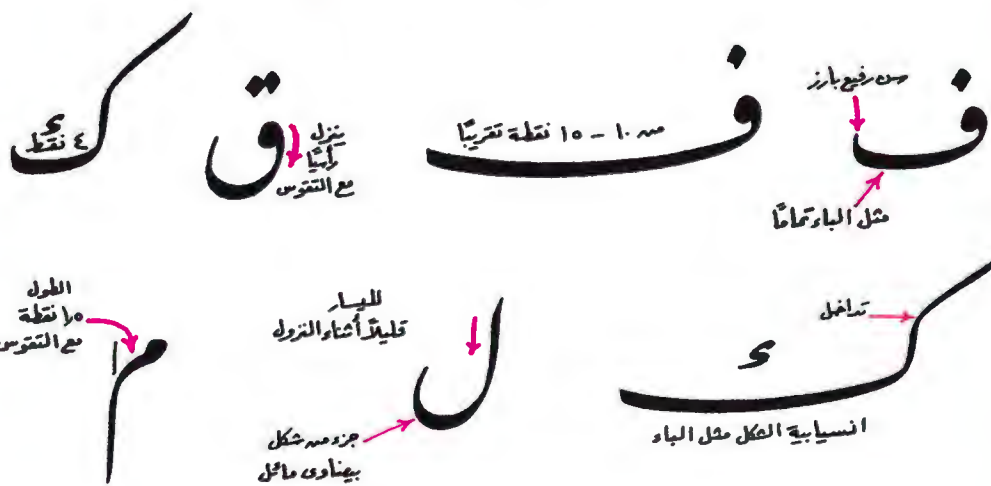 ف
سن رفيع بارز
مثل الباء تمامًا
ف
من ١٠ - ١٥ نقطة تقريبًا
ق
ينزل
رأسيًا
مع التقوس
ك
٤ نقط
ك
تداخل
انسيابية الشكل مثل الباء
ل
لليسار
قليلاً أثناء النزول
جزء من شكل
بيضاوى مائل
م
الطول
نقطة
مع التقوس